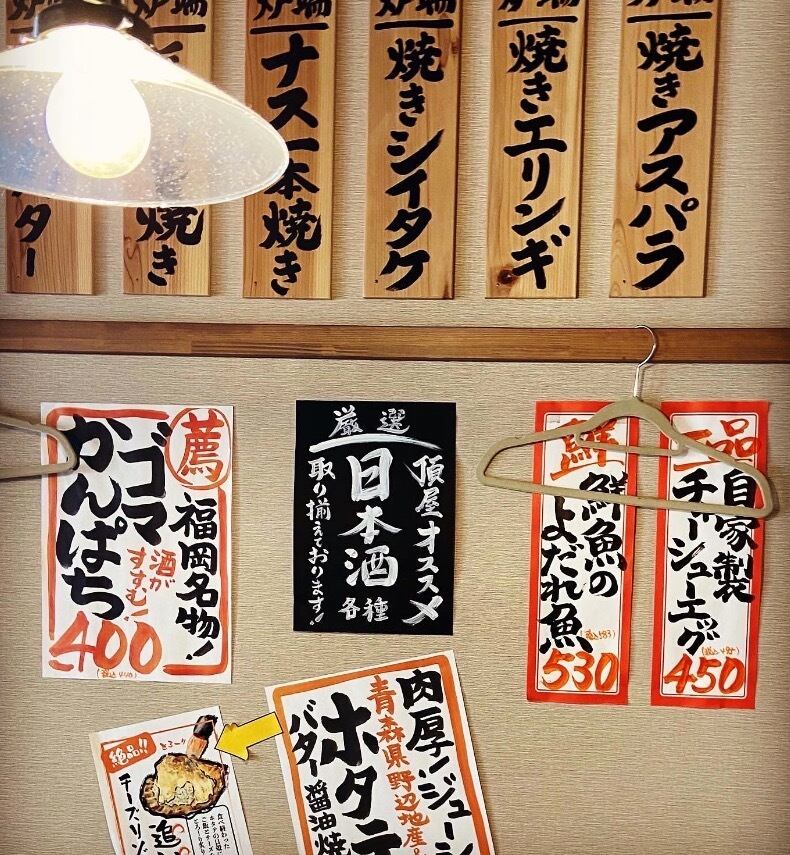 炉端
焼きアスパラ
炉端
焼きエリンギ
炉端
焼きシイタケ
炉端
ナス一本焼き
焼き
ター
一品
自家製
チャーシューエッグ
(税込495)
450
鮮
鮮魚の
よだれ魚
(税込583)
530
厳選
頂屋オススメ
日本酒
各種
取り揃えております!
薦
福岡名物!
酒が
すすむ!
ゴマ
かんぱち
400
(税込440)
肉厚!ジューシ
青森県野辺地産
ホタテ
バター醤油焼
絶品!!
とろ〜り
追い
チーズリゾ
食べ終わった